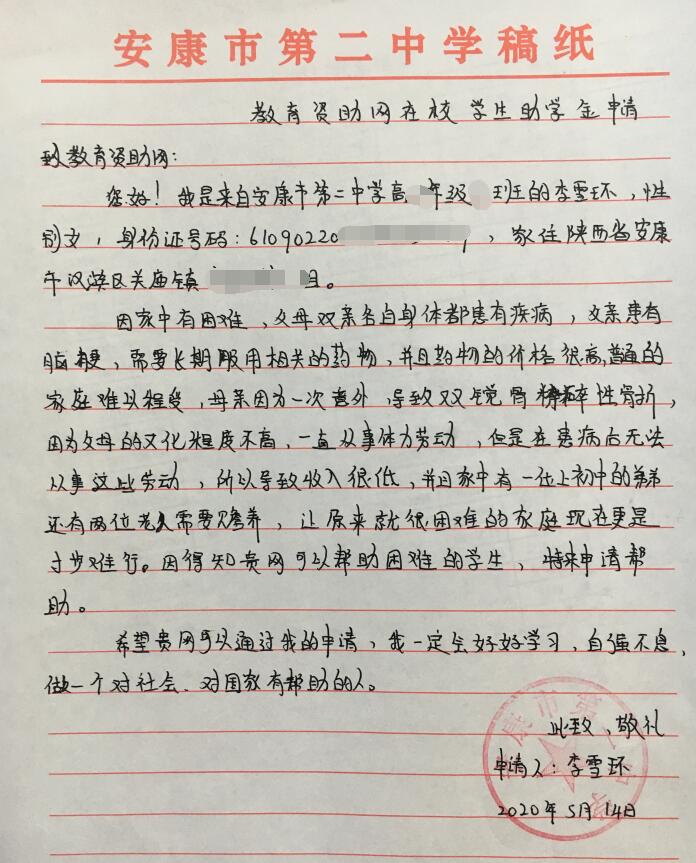 安康市第二中学稿纸
教育资助网在校学生助学金申请
致教育资助网:
您好!我是来自安康市第二中学高 年级 班的李雪环,性
别女,身份证号码:61090220 ,家住陕西省安康
市汉滨区关庙镇 组。
因家中有困难,父母双亲各自身体都患有疾病,父亲患有
脑梗,需要长期服用相关的药物,并且药物的价格很高,普通的
家庭难以程度,母亲因为一次意外,导致双 骨粉碎性骨折,
因为父母的文化程度不高,一直从事体力劳动,但是在患病后无法
从事这些劳动,所以导致收入很低,并且家中有一位上初中的弟弟
还有两位老人需要赡养,让原来就很困难的家庭现在更是
寸步难行。因得知贵网可以帮助困难的学生,特来申请帮
助。
希望贵网可以通过我的申请,我一定会好好学习,自强不息,
做一个对社会、对国家有帮助的人。
此致、敬礼
申请人:李雪环
2020年5月14日
安康市第